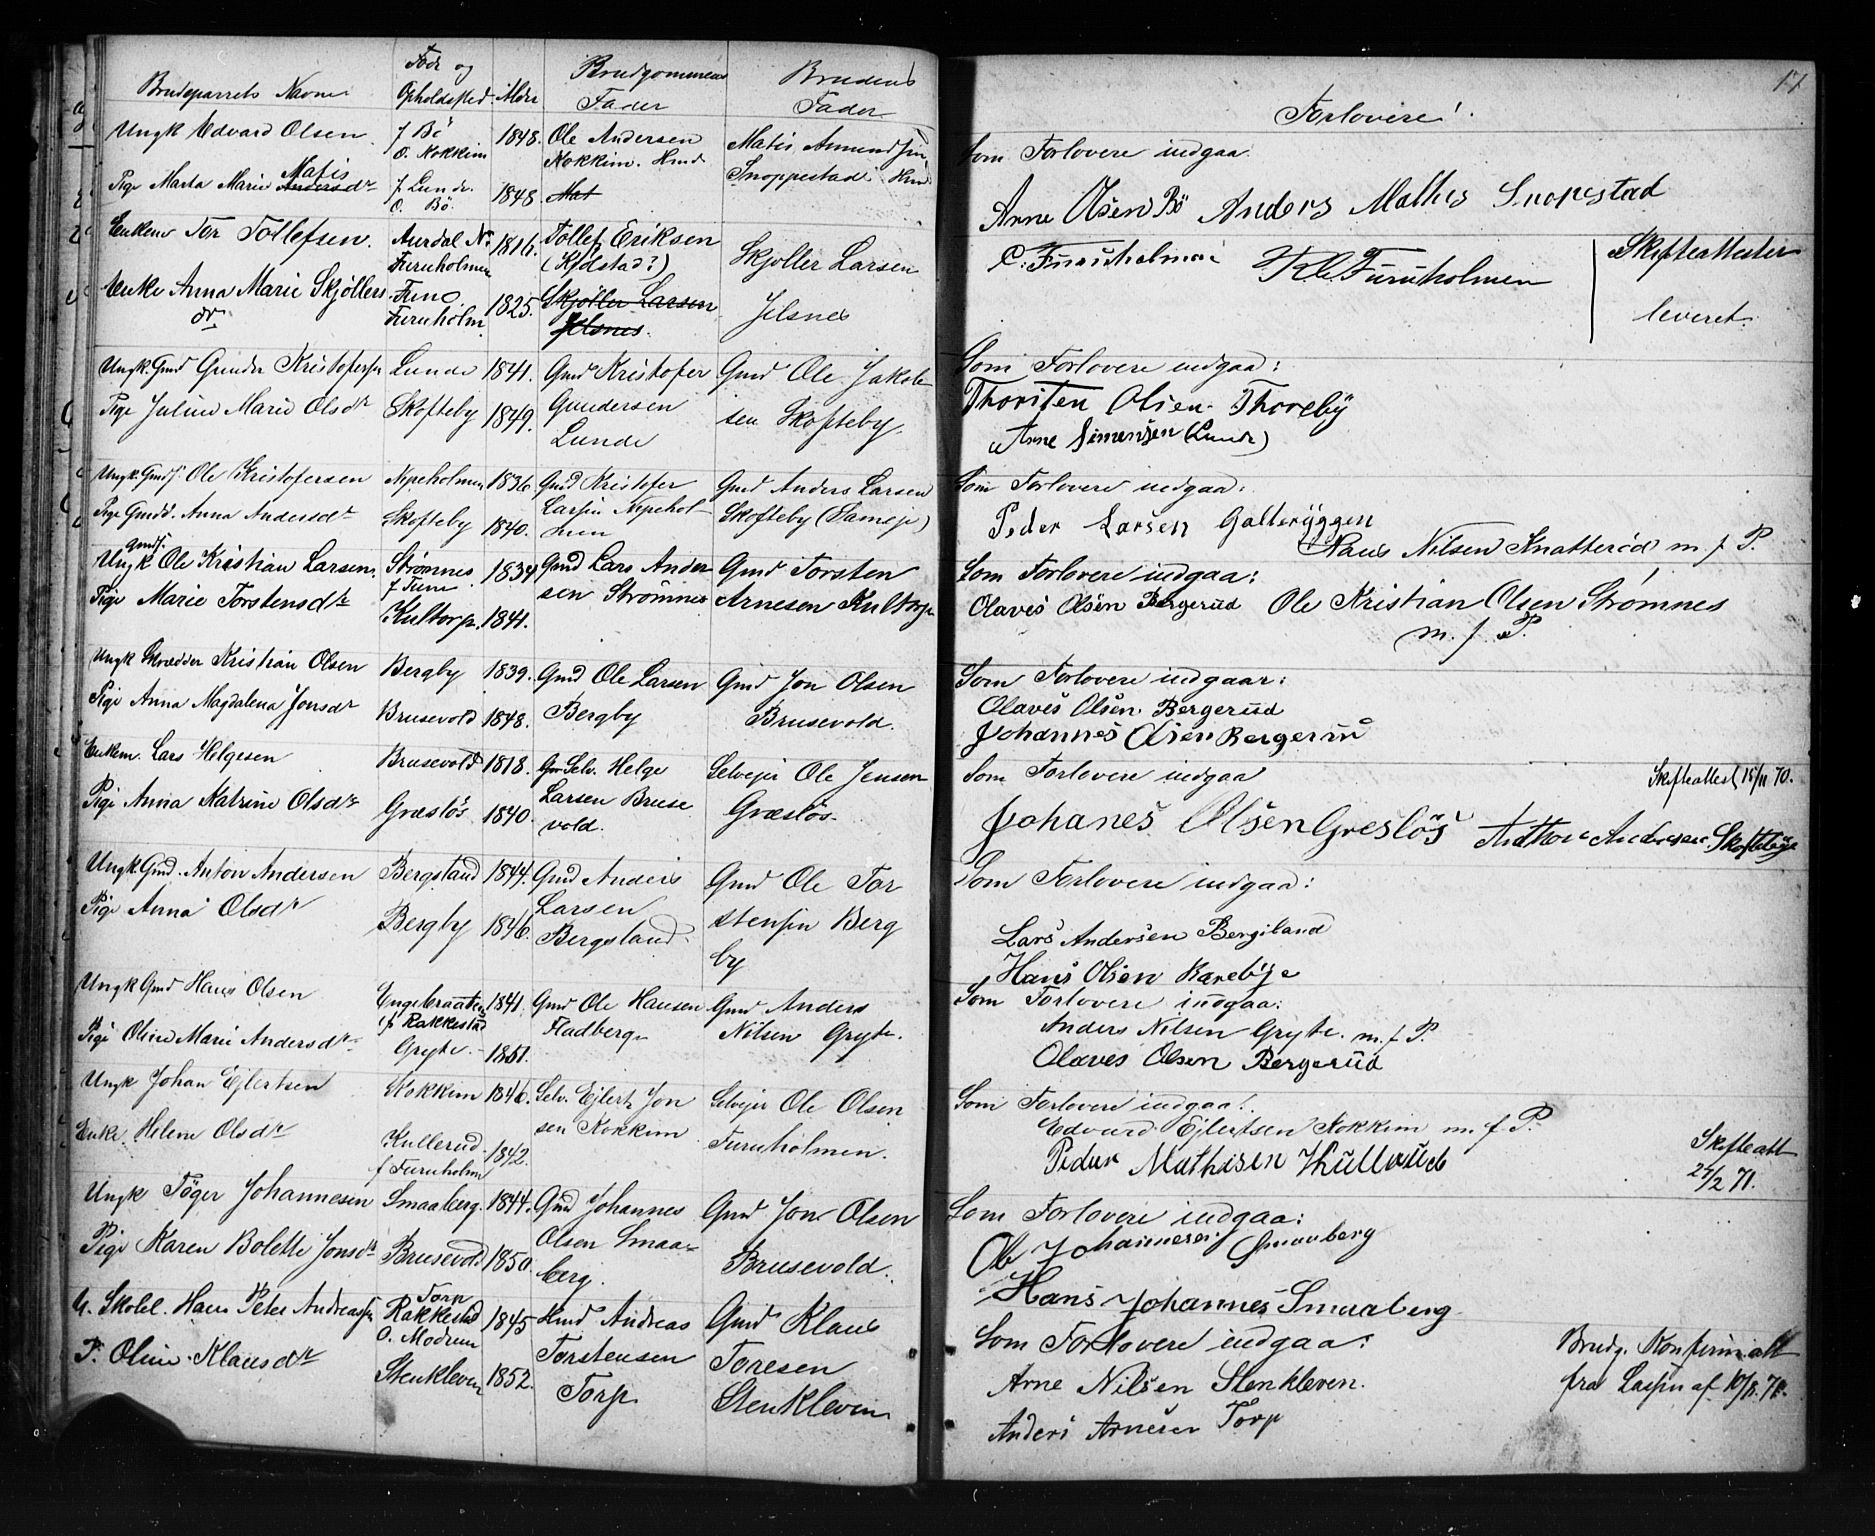 Brudeparrets Navne
Føde og
Opholdsted
Alder
Brudgommens
Fader
Brudens
Fader
Ungk Edvard Olsen
f Bö
O. Kokkim
1848.
Ole Andersen
Kokkim. Hmd
Matis
Snoppestad Hmd
Matis
Pige Marta Marie Andersdr
f Lunde
O. Bö.
1848.
Mat
Enkem Tor Tollefsen.
Aurdal N.
Furuholmen
1816.
Tollef Eriksen
(Kjølstad?)
Skjöller Larsen
Enke Anna Marie Skjöllers
dr
Furuholm.
1825.
Skjöller Larsen
Jelsnes.
Jelsnes
Ungk. Gmd Gunder Kristofersen
Lunde
1841.
Gmd Kristofer
Gmd Ole Jakob
Pige Juline Marie Olsdr
Skofteby
1849.
Gundersen
Lunde
sen Skofteby.
Ungk. Gmdf. Ole Kristofersen
Nypeholmen
1836
Gmd Kristofer
Gmd Anders Larsen
Pige Gmdd. Anna Andersdr
Skofteby
1840.
Larsen Nypehol
men
Skofteby
Gmdf.
Ungk Ole Kristian Larsen.
Strömnes
1834
Gmd Lars Ander
sen Strömnes
Gmd Torsten
Arnesen Kultorp
Pige Marie Torstensdr
Kultorp.
1841.
Ungk Skrædder Kristian Olsen
Bergby
1839.
Gmd Ole Larsen
Bergby
Gmd Jon Olsen
Brusevold.
Pige Anna Magdalena Jonsdr
Brusevold
1848.
Enkem. Lars Helgesen
Brusevold
1818.
Selv. Helge
Larsen Bruse
vold.
Selvejer Ole Jensen
Græslös.
Pige Anna Katrine Olsdr
Græslös
1840.
Ungk. Gmd. Anton Andersen
Bergstad
1844.
Gmd Anders
Larsen
Bergsland.
Gmd Ole Tor
stensen Berg
by
Pige Anna Olsdr
Bergby
1846.
Ungk Gmd Hans Olsen
Engebraaten
f Rakkestad
1841.
Gmd Ole Hansen
Fladberg
Gmd Anders
Nilsen Gryte.
Pige Oline Marie Andersdr
Gryte.
1851.
Ungk Johan Ejlertsen
Kokkim
1846.
Selv. Ejlert Jon
sen Kokkim
Selvejer Ole Olsen
Furuholmen.
Enke Helene Olsdr
Kullerud.
f Furuholm
1842.
Ungk Töger Johannesen
Smaaberg.
1844.
Gmd Johannes
Olsen Smaa=
berg.
Gmd Jon Olsen
Brusevold.
Pige Karen Bolette Jonsdr
Brusevold
1850.
U. Skolel. Hans Peter Andreassen
Torp
Rakkestad
O. Modum
1845
Hmd Andreas
Torstensen
Torp
Gmd Klaus
Toresen
Stenkleven
P. Oline Klausdr
Stenkleven
1852.
17
Forlovere!
Som Forlovere indgaa.
Arne Olsen Bö Anders Mathis Snopestad
C. Furuholmen
Furuholmen
Skifteattester
leveret.
Som Forlovere indgaa:
Thorsten Olsen Thoreby
Arne Simensen (Lunde)
Som Forlovere indgaa:
Peder Larsen Galterüggen
Hans Nilsen Knatteröd m. f P.
Som Forlovere indgaa:
Olaves Olsen Bergerud Ole Kristian Olsen Strömnes
m. f. P.
Som Forlovere indgaar:
Olaves Olsen Bergerud
Johannes Olsen Bergerud
Som Forlovere indgaa
Skifteattest 15/11 70.
Johanes Olsen Greslös Andersen Skofteby
Som Forlovere indgaa:
Lars Andersen Bergsland
Hans Olsen Karebye
Som Forlovere indgaa:
Anders Nilsen Gryte. m. f P.
Olaves Olsen Bergerud
Som Forlovere indgaa!
Edvard Ejlertsen Kokkim m. f P.
Peder Mathisen Kullerud
Skifteatt
2/2 71.
Som Forlovere indgaa:
Ole Johannesen Smaaberg
Hans Johannes Smaaberg
Som Forlovere indgaa:
Arne Nilsen Stenkleven.
Anders Arnesen Torp
Brudg. Konfirm. att
fra